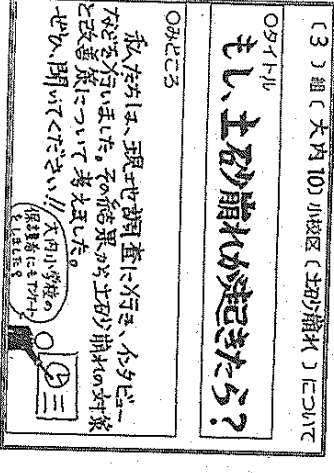 (3)組(大内10)小校区(土砂崩れ)について
○タイトル
もし、土砂崩れが起きたら?
○みどころ
私たちは、現地調査に行き、インタビュー
などを行いました。その結果から土砂崩れの対策
と改善策について考えました。
ぜひ、聞いてください!!
大内小学校の
保護者にもアンケート
をしました?